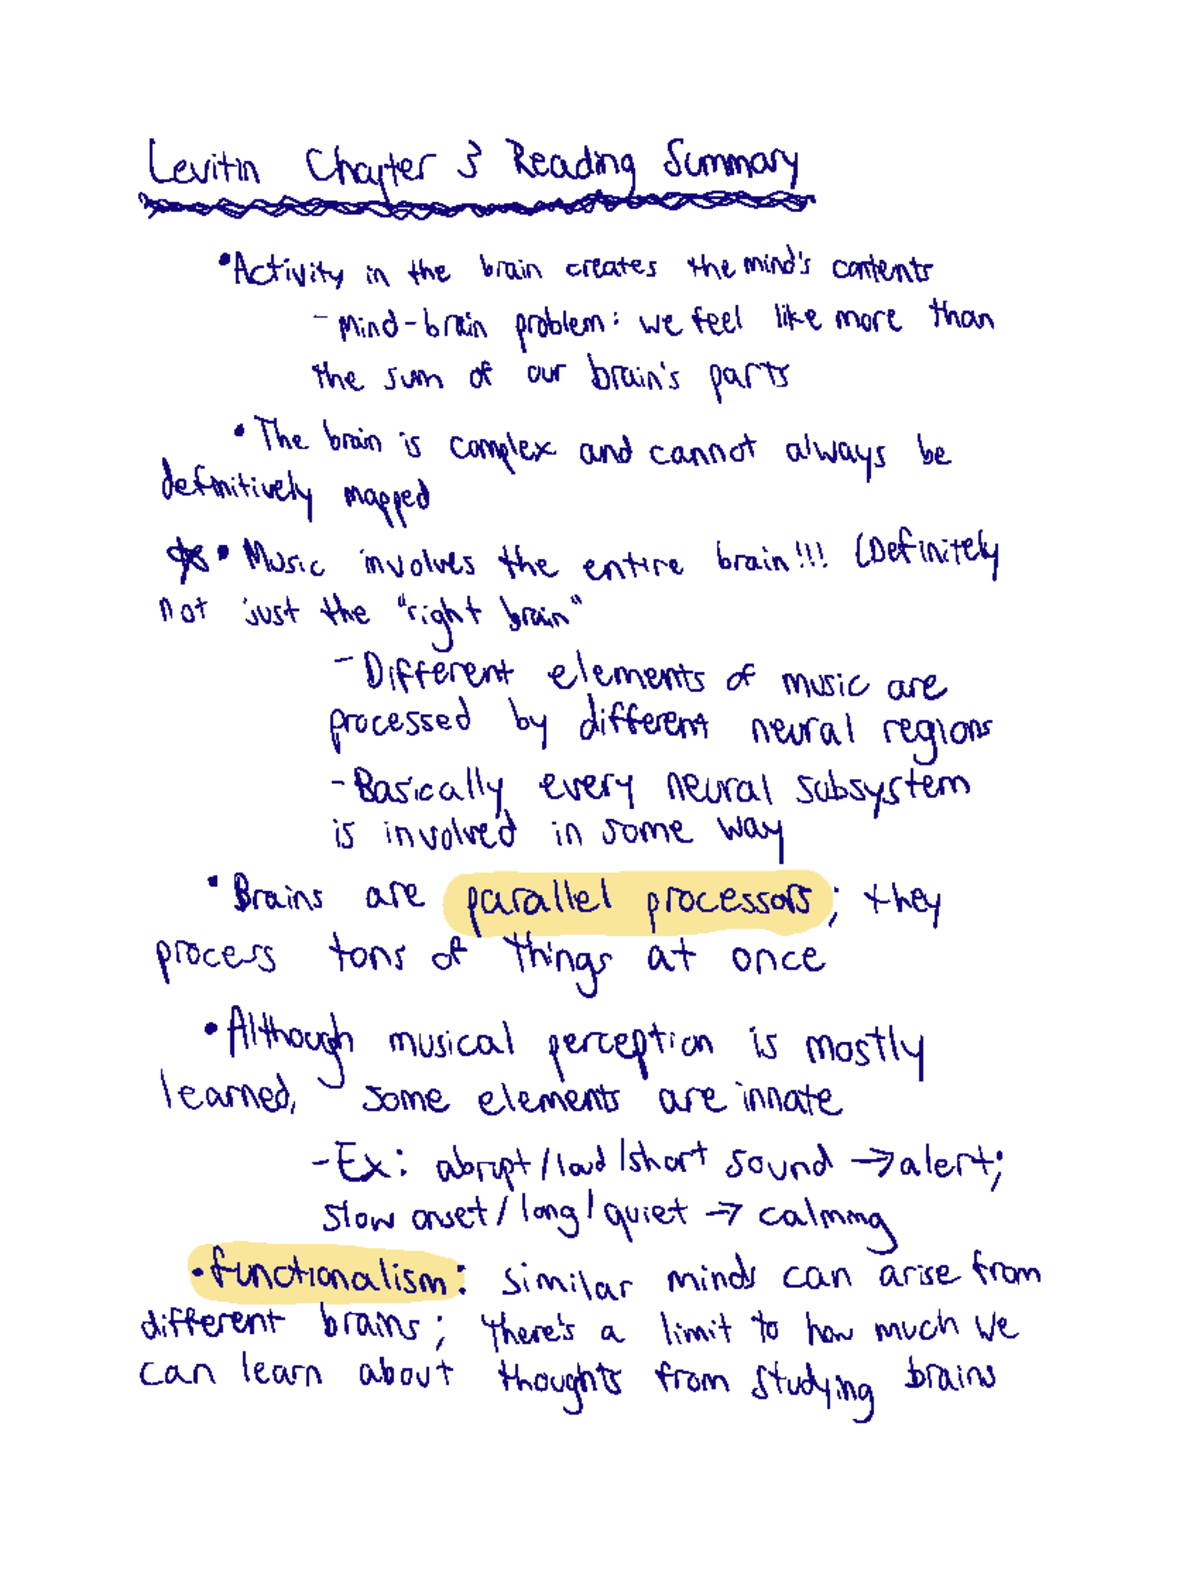 Levitin Chapter 3 Reading Summary
•Activity in the brain creates the mind's contents
- Mind-brain problem: we feel like more than
the sum of our brain's parts
• The brain is complex and cannot always be
definitively mapped
☆• Music involves the entire brain!!! (Definitely
not just the "right brain"
- Different elements of music are
processed by different neural regions
- Basically every neural subsystem
is involved in some way
• Brains are parallel processors; they
process tons of things at once
• Although musical perception is mostly
learned, some elements are innate
- Ex: abrupt/loud/short sound → alert;
slow onset/long/quiet → calming
• functionalism: similar minds can arise from
different brains; there's a limit to how much we
can learn about thoughts from studying brains